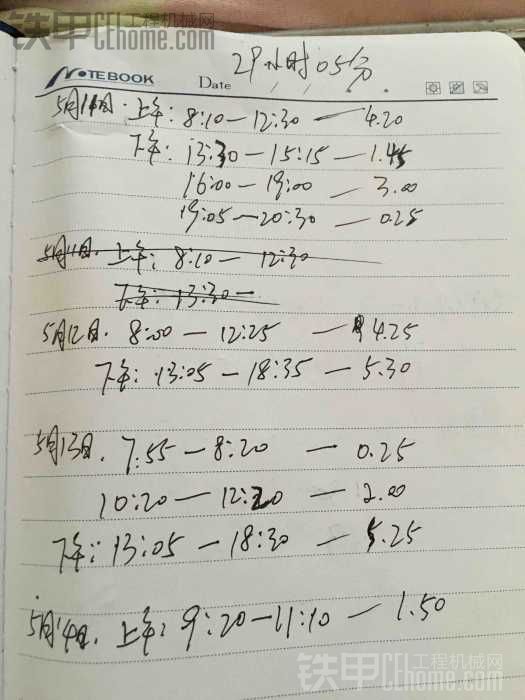 铁甲 工程机械网 CEhome.com
29小时05分
NOTEBOOK Date / / .
5月11日. 上午: 8:10—12:30 — 4.20
下午: 13:30—15:15 — 1.45
16:00—19:00 — 3.00
19:05—20:30 — 0.25
5月11日. 上午: 8:10 — 12:30
下午: 13:30 —
5月12日. 8:00 — 12:25 — 4.25
下午: 13:05 — 18:35 — 5.30
5月13日. 7:55 — 8:20 — 0.25
10:20 — 12:20 — 2.00
下午: 13:05 — 18:30 — 5.25
5月14日. 上午: 9:20—11:10 — 1.50
铁甲 工程机械网 CEhome.com